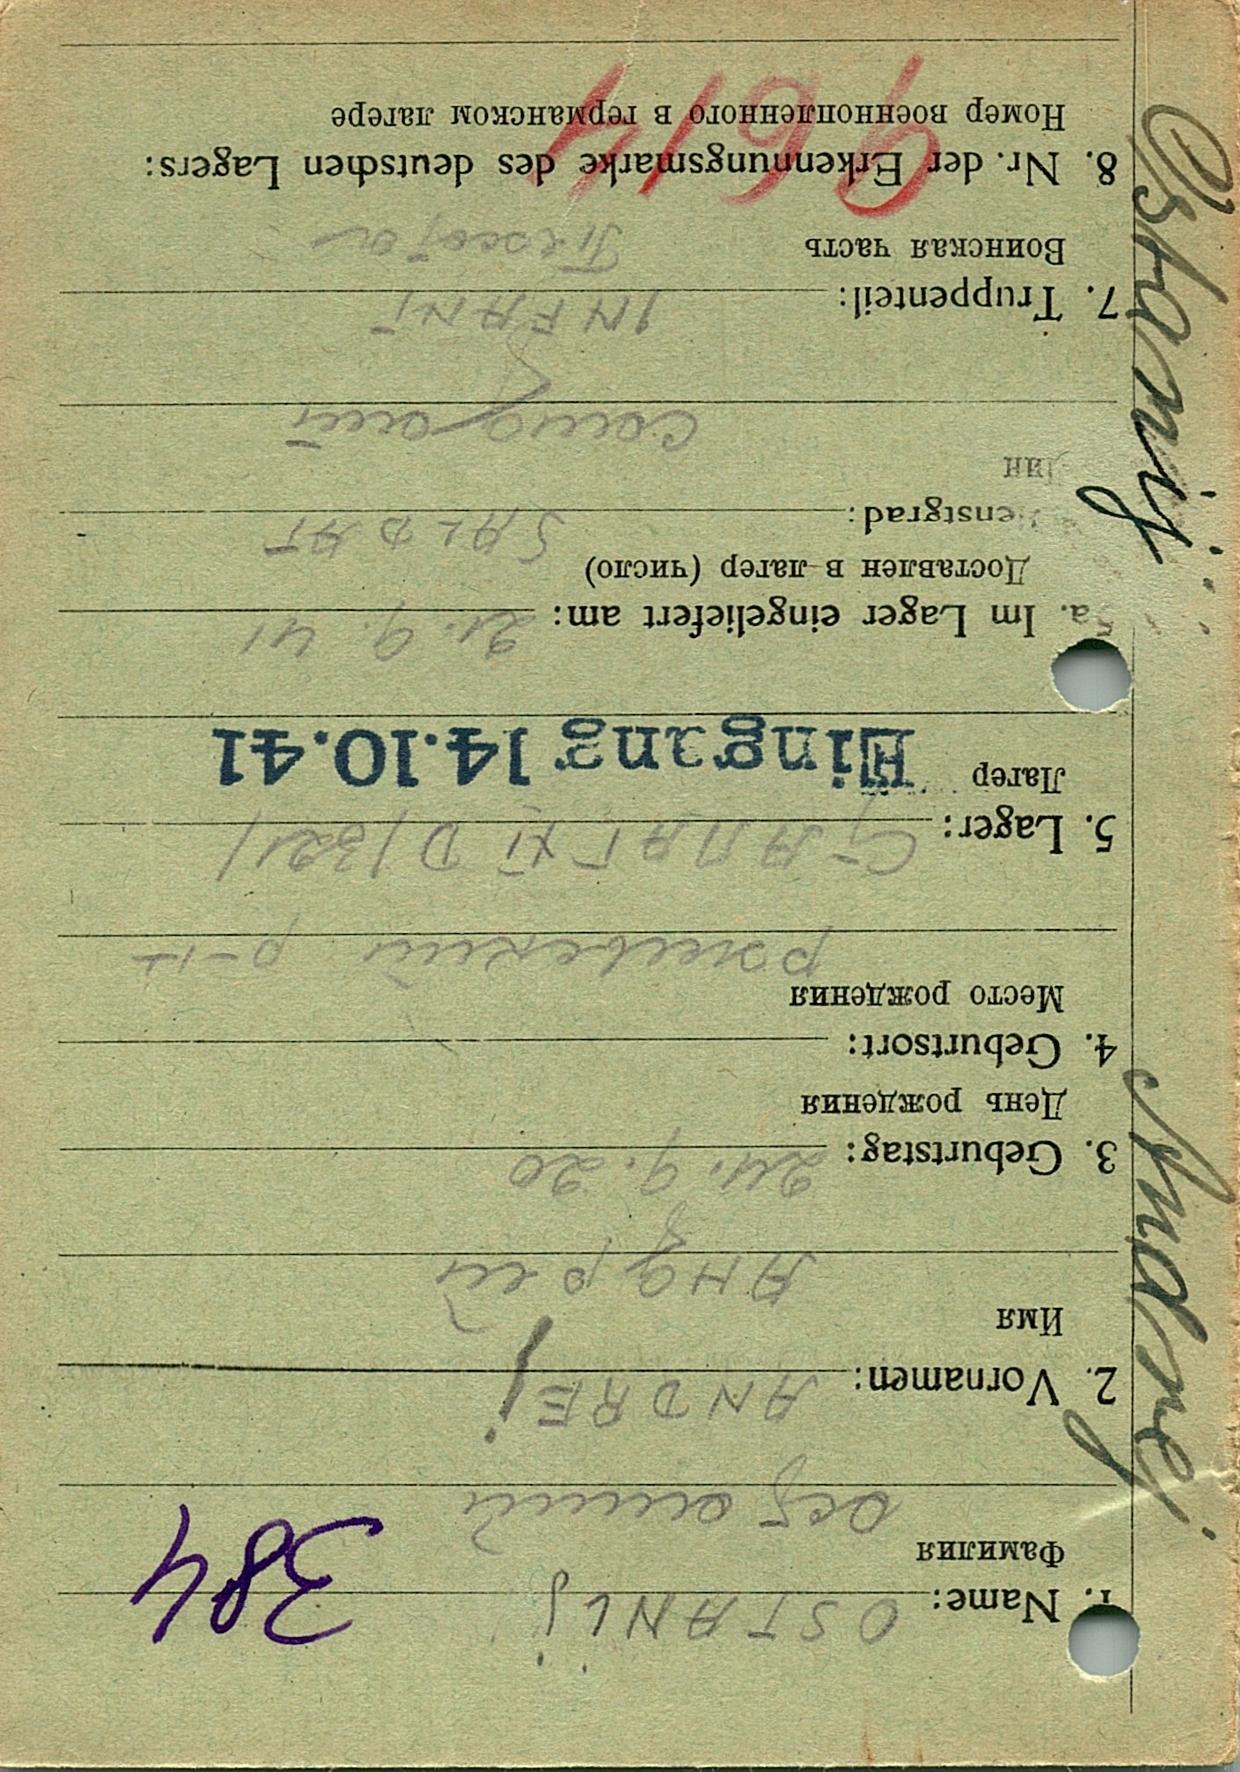 Ostanij Andrej
1. Name: OSTANIJ
Фамилия
Остании
384
2. Vornamen: ANDREJ
Имя
Андрей
3. Geburtstag: 24.9.20
День рождения
4. Geburtsort:
Место рождения
ржевский р-н
5. Lager: XI D/321/
Лагер
Eingang 14.10.41
5a. Im Lager eingeliefert am: 21.9.41
Доставлен в лагер (число)
enstgrad: SALDAT
ин
7. Truppenteil: INFANT
Воинская часть
Пехота
8. Nr. der Erkennungsmarke des deutschen Lagers:
Номер военнопленного в германском лагере
9614